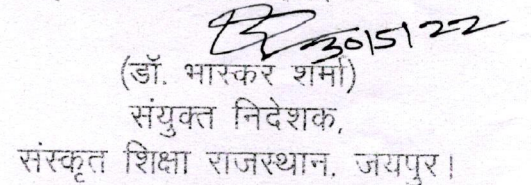 30/5/22
(डॉ. भास्कर शर्मा)
संयुक्त निदेशक,
संस्कृत शिक्षा राजस्थान, जयपुर।